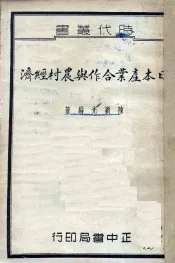 書叢代時
濟經村農與作合業產本日
著編
行印局書中正